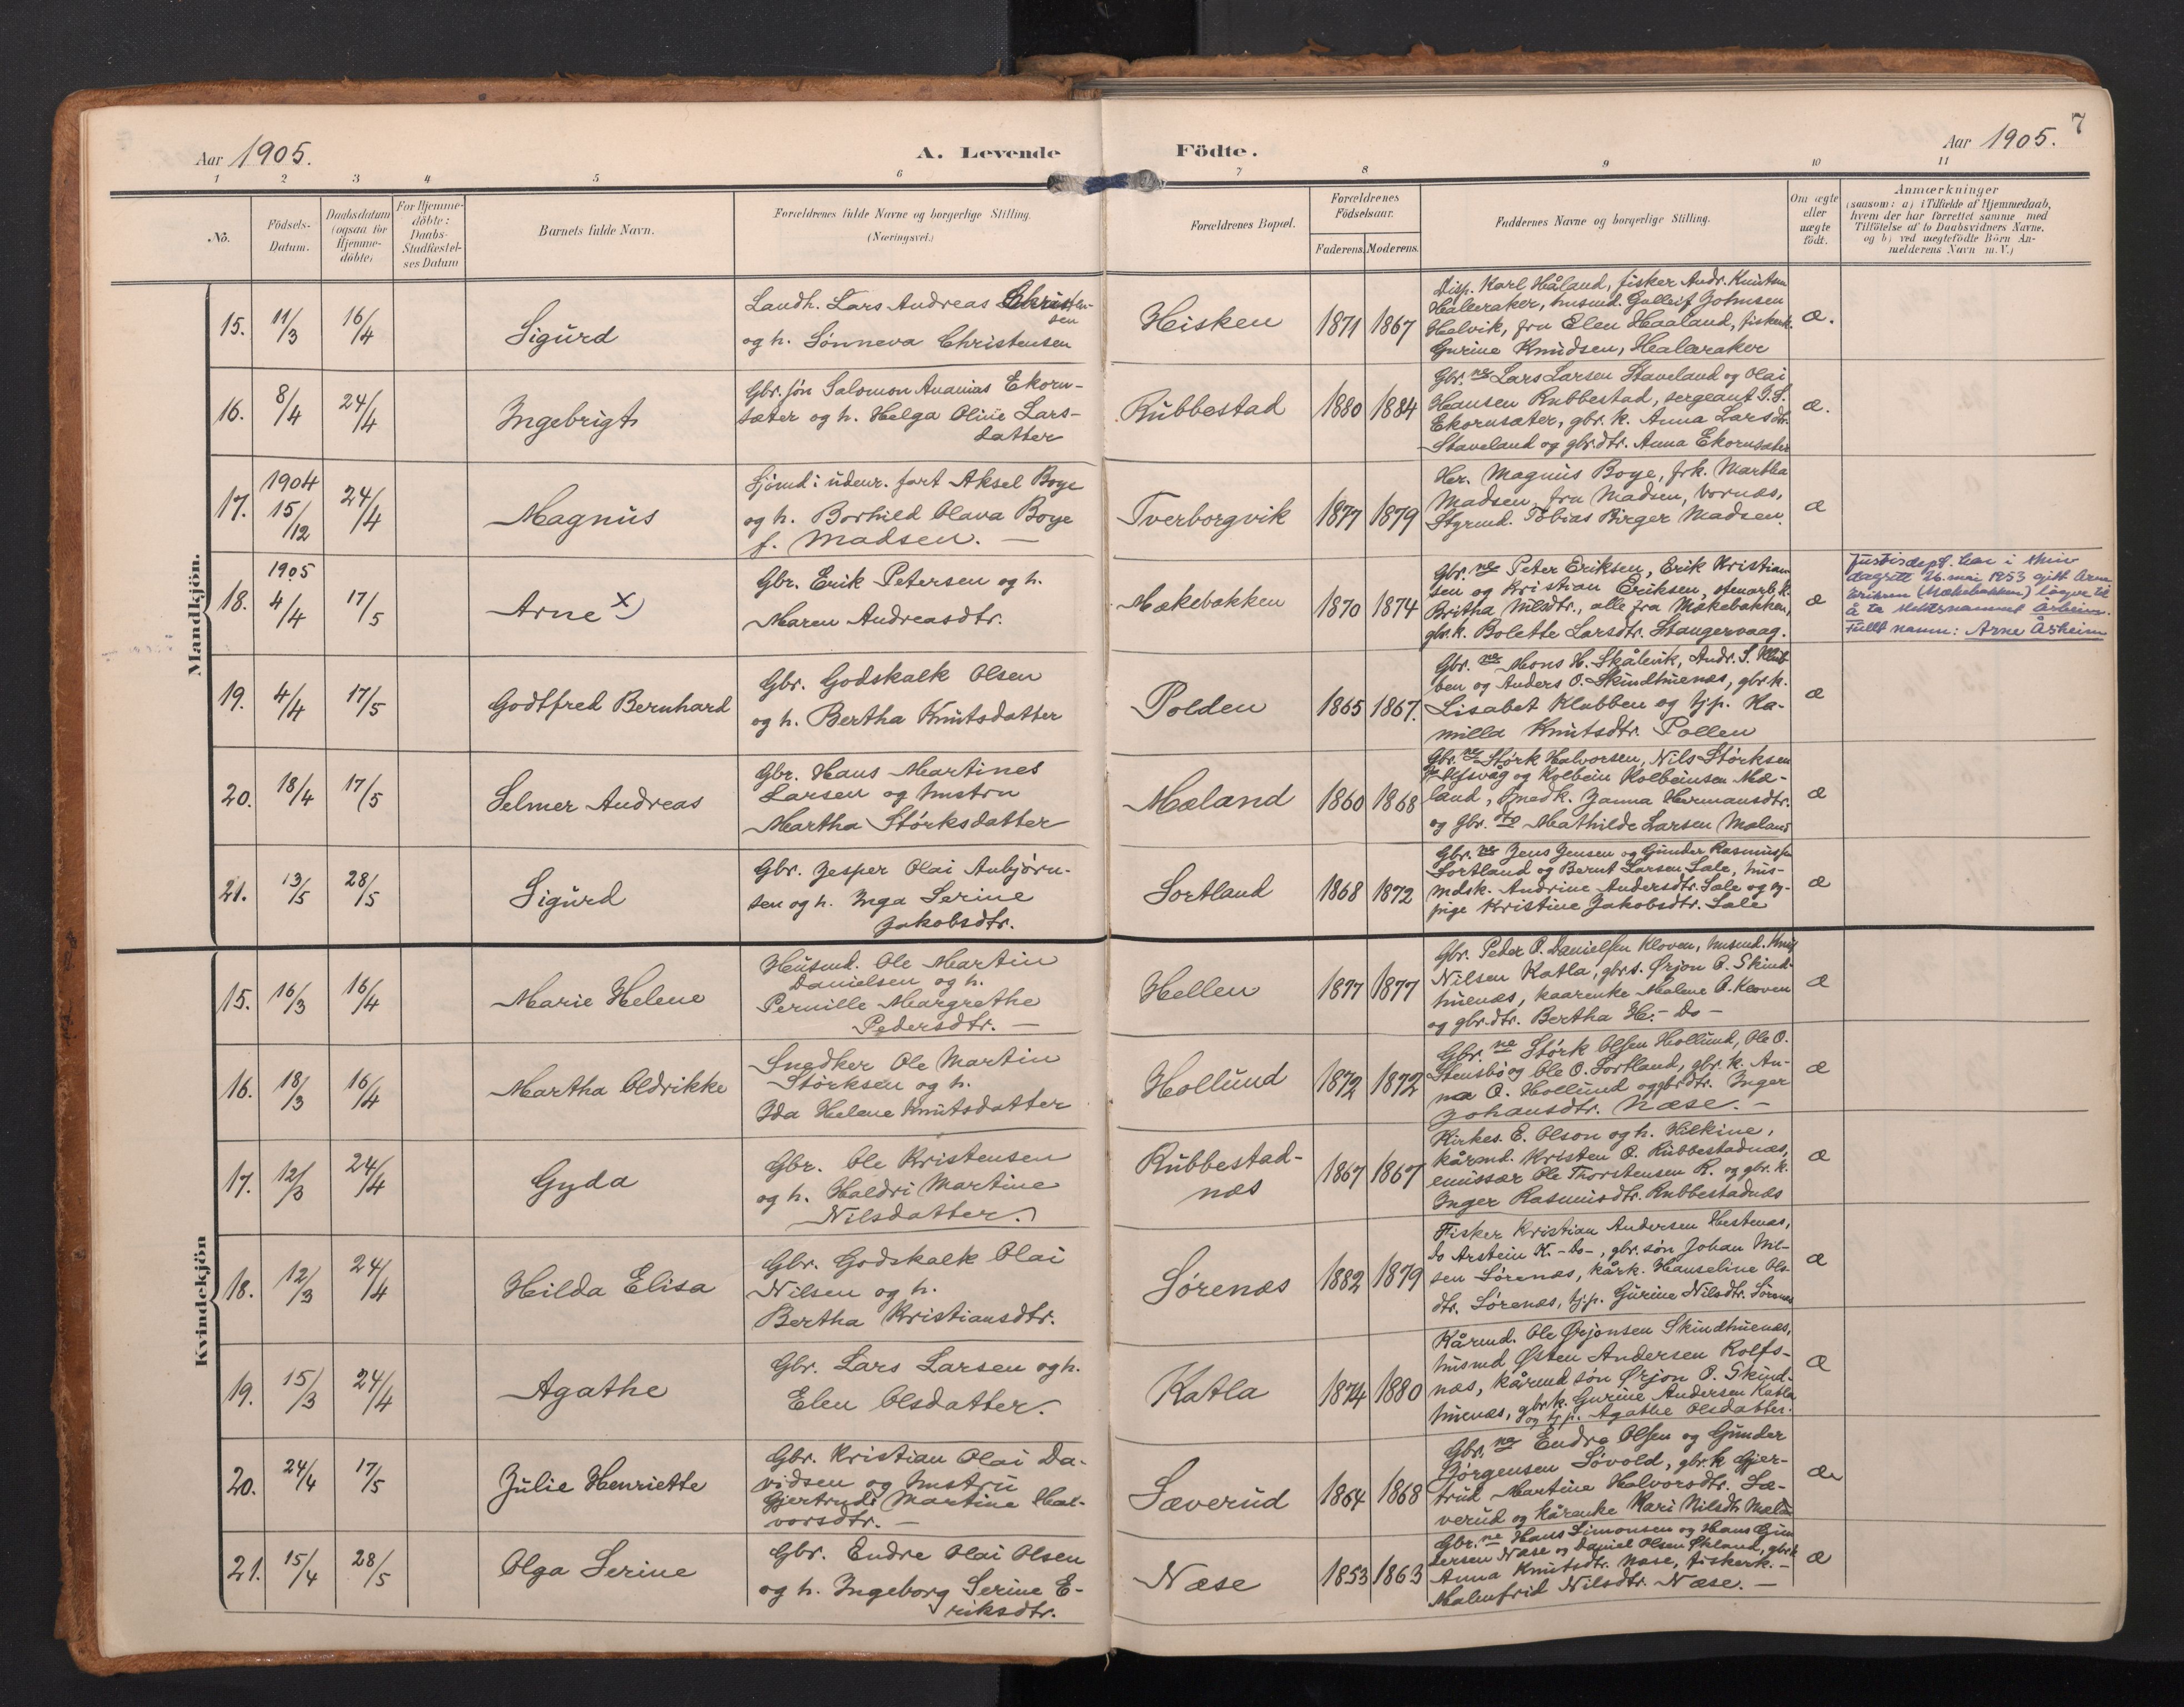 7
Aar 1905.
A. Levende Födte.
Aar 1905.
1 2 3 4 5 6 7 8 9 10 11
No.
Födsels-
Datum.
Daabsdatum
(ogsaa for
Hjemme-
döbte)
For Hjemme-
döbte:
Daabs-
Stadfæstel-
ses Datum
Barnets fulde Navn.
Forældrenes fulde Navne og borgerlige Stilling.
(Næringsvei.)
Forældrenes Bopæl.
Forældrenes
Födselsaar.
Faderens. Moderens.
Faddernes Navne og borgerlige Stilling.
Om ægte
eller
uægte
födt.
Anmærkninger
(saasom: a) i Tilfælde af Hjemmedaab,
hvem der har forrettet samme, med
Tilföielse af to Daabsvidners Navne,
og b) ved uægtefödte Börn An-
melderens Navn m. V.)
Mandkjön.
15. 11/3 16/4
Sigurd
Landh. Lars Andreas Christen-
sen
og h. Sønneva Christensen
Hisken
1871 1867
Disp. Karl Håland, fisker Andr. Knutsen
Hålleraker, husmd. Gulleif Johnsen
Helvik, fru Elen Haaland, fiskerk.
Gurine Knudsen, Healeraker
æ.
16. 8/4 24/4
Ingebrigt
Gbr. søn Salomon Ananias Ekorn-
sæter og h. Helga Oline Lars-
datter
Rubbestad
1880 1884
Gbr. ne Lars Larsen Staveland og Olai
Hansen Rubbestad, sergeant I. S.
Ekornsæter, gbr. k. Anna Larsdtr.
Staveland og gbr. dtr. Anna Ekornsæter
æ.
17. 1904 15/12 24/4
Magnus
Sjømd i udenr. fart Aksel Boye
og h. Borhild Olava Boye
f. Madsen. —
Tverborgvik
1877 1879
Hr. Magnus Boye, frk. Martha
Madsen, fru Madsen, Vornæs,
Styrmd. Tobias Birger Madsen.
æ
18. 1905 4/4 17/5
Arne x)
Gbr. Erik Petersen og h.
Maren Andreasdtr.
Mækebakken
1870 1874
Gbr. ne Peter Eriksen, Erik Kristian
sen og Kristian Eriksen, stenarb. k.
Britha Nilsdtr., alle fra Mækebakken,
gbr. k. Bolette Larsdtr. Stangervaag.
æ
Justisdept. har i skriv
dagsett 26. mai 1953 gitt Arne
Eriksen (Mækebakken) løyve til
å ta slektsnamnet Årheim.
Fullt namn: Arne Årheim
19. 4/4 17/5
Godtfred Bernhard
Gbr. Godskalk Olsen
og h. Bertha Knutsdatter
Polden
1865 1867.
Gbr. ne Mons H. Skålevik, Andr. S. Klub-
ben og Anders O. Skindhuenæs, gbr. k.
Lisabet Klubben og tj. p. Ka-
milla Knutsdtr. Pollen
æ
20. 18/4 17/5
Selmer Andreas
Gbr. Hans Martines
Larsen og hustru
Martha Størksdatter
Mæland
1860 1868
Gbr. ne Størk Halvorsen, Nils Størksen
og Kolbein Kolbeinsen Mæ-
land, smedk. Janna Hermansdtr.
og Gbr. dtr Mathilde Larsen Mæland
æ
21. 13/5 28/5
Sigurd
Gbr. Jesper Olai Anbjørn-
sen og h. Inga Serine
Jakobsdtr.
Sortland
1868 1872
Gbr. ne Jens Jensen og Gunder Rasmussen
Sortland og Bernt Larsen Sale, hus-
mdsk. Andrine Andersdtr. Sale og
pige Kristine Jakobsdtr. Sale
æ
Kvindekjön
15. 16/3 16/4
Marie Helene
Husmd. Ole Martin
Danielsen og h.
Pernille Margrethe
Pedersdtr. —
Hellen
1877 1877
Gbr. Peder P. Danielsen Kloven, husmd. Knut
Nilsen Katla, gbrs. Ørjon O. Skind-
huenæs, kaarenke Malene P. Kloven
og gbr. dtr. Bertha H. - Do -
æ
16. 18/3 16/4
Martha Oldrikke
Snedker Ole Martin
Størksen og h.
Ida Helene Knutsdatter
Hollund
1872 1872
Gbr. ne Størk Olsen Hollund, Ole O.
Stensbø og Ole O. Sortland, gbr. k. An-
na O. Hollund og gbr. dtr. Inger
Johansdtr. Næse. —
æ
17. 12/3 24/4
Gyda
Gbr. Ole Kristensen
og h. Haldri Martine
Nilsdatter.
Rubbestad-
næs
1867 1867
Kirkes. E. Olson og h. Hilkine,
kårmd. Kristen O. Rubbestadnæs,
emissær Ole Thorstensen R. og gbr. k.
Inger Rasmusdtr. Rubbestadnæs
æ
18. 12/3 24/4
Hilda Elisa
Gbr. Godskalk Olai
Nilsen og h.
Bertha Kristiansdtr.
Sørenæs
1882 1879
Fisker Kristian Andersen Hestenæs,
do Arstein K. - do -, gbr. søn Johan Nil-
sen Sørenæs, kårk. Hanseline Ols-
dtr. Sørenæs, tj. p. Gurine Nilsdtr. Sørenæs
æ
19. 15/3 24/4
Agathe
Gbr. Lars Larsen og h.
Elen Olsdatter.
Katla
1874 1880
Kårmd. Ole Ørjonsen Skindhuenæs,
husmd Østen Andersen Rolfs-
næs, kårmd søn Ørjon O. Skind-
huenæs, gbr. k. Gurine Andersen Katla
og tj. p. Agathe Olsdatter.
æ
20. 24/4 17/5
Julie Henriette
Gbr. Kristian Olai Da-
vidsen og hustru
Gjertrud Martine Hal-
vorsdtr. —
Sæverud
1864 1868
Gbr. ne Endre Olsen og Gunder
Jørgensen Søvold, gbr. k Gjer-
trud Martine Halvorsdtr. Sæ-
verud og kårenke Kari Nilsdtr. Mæland
æ
21. 15/4 28/5
Olga Serine
Gbr. Endre Olai Olsen
og h. Ingeborg Serine E-
riksdtr.
Næse
1853 1863
Gbr. ne Hans Simonsen og Hans Gun
dersen Næse og Daniel Olsen Økland, gbr. k
Anna Knutsdtr. Næse, fiskerk. -
Malenfrid Nilsdtr. Næse. —
æ